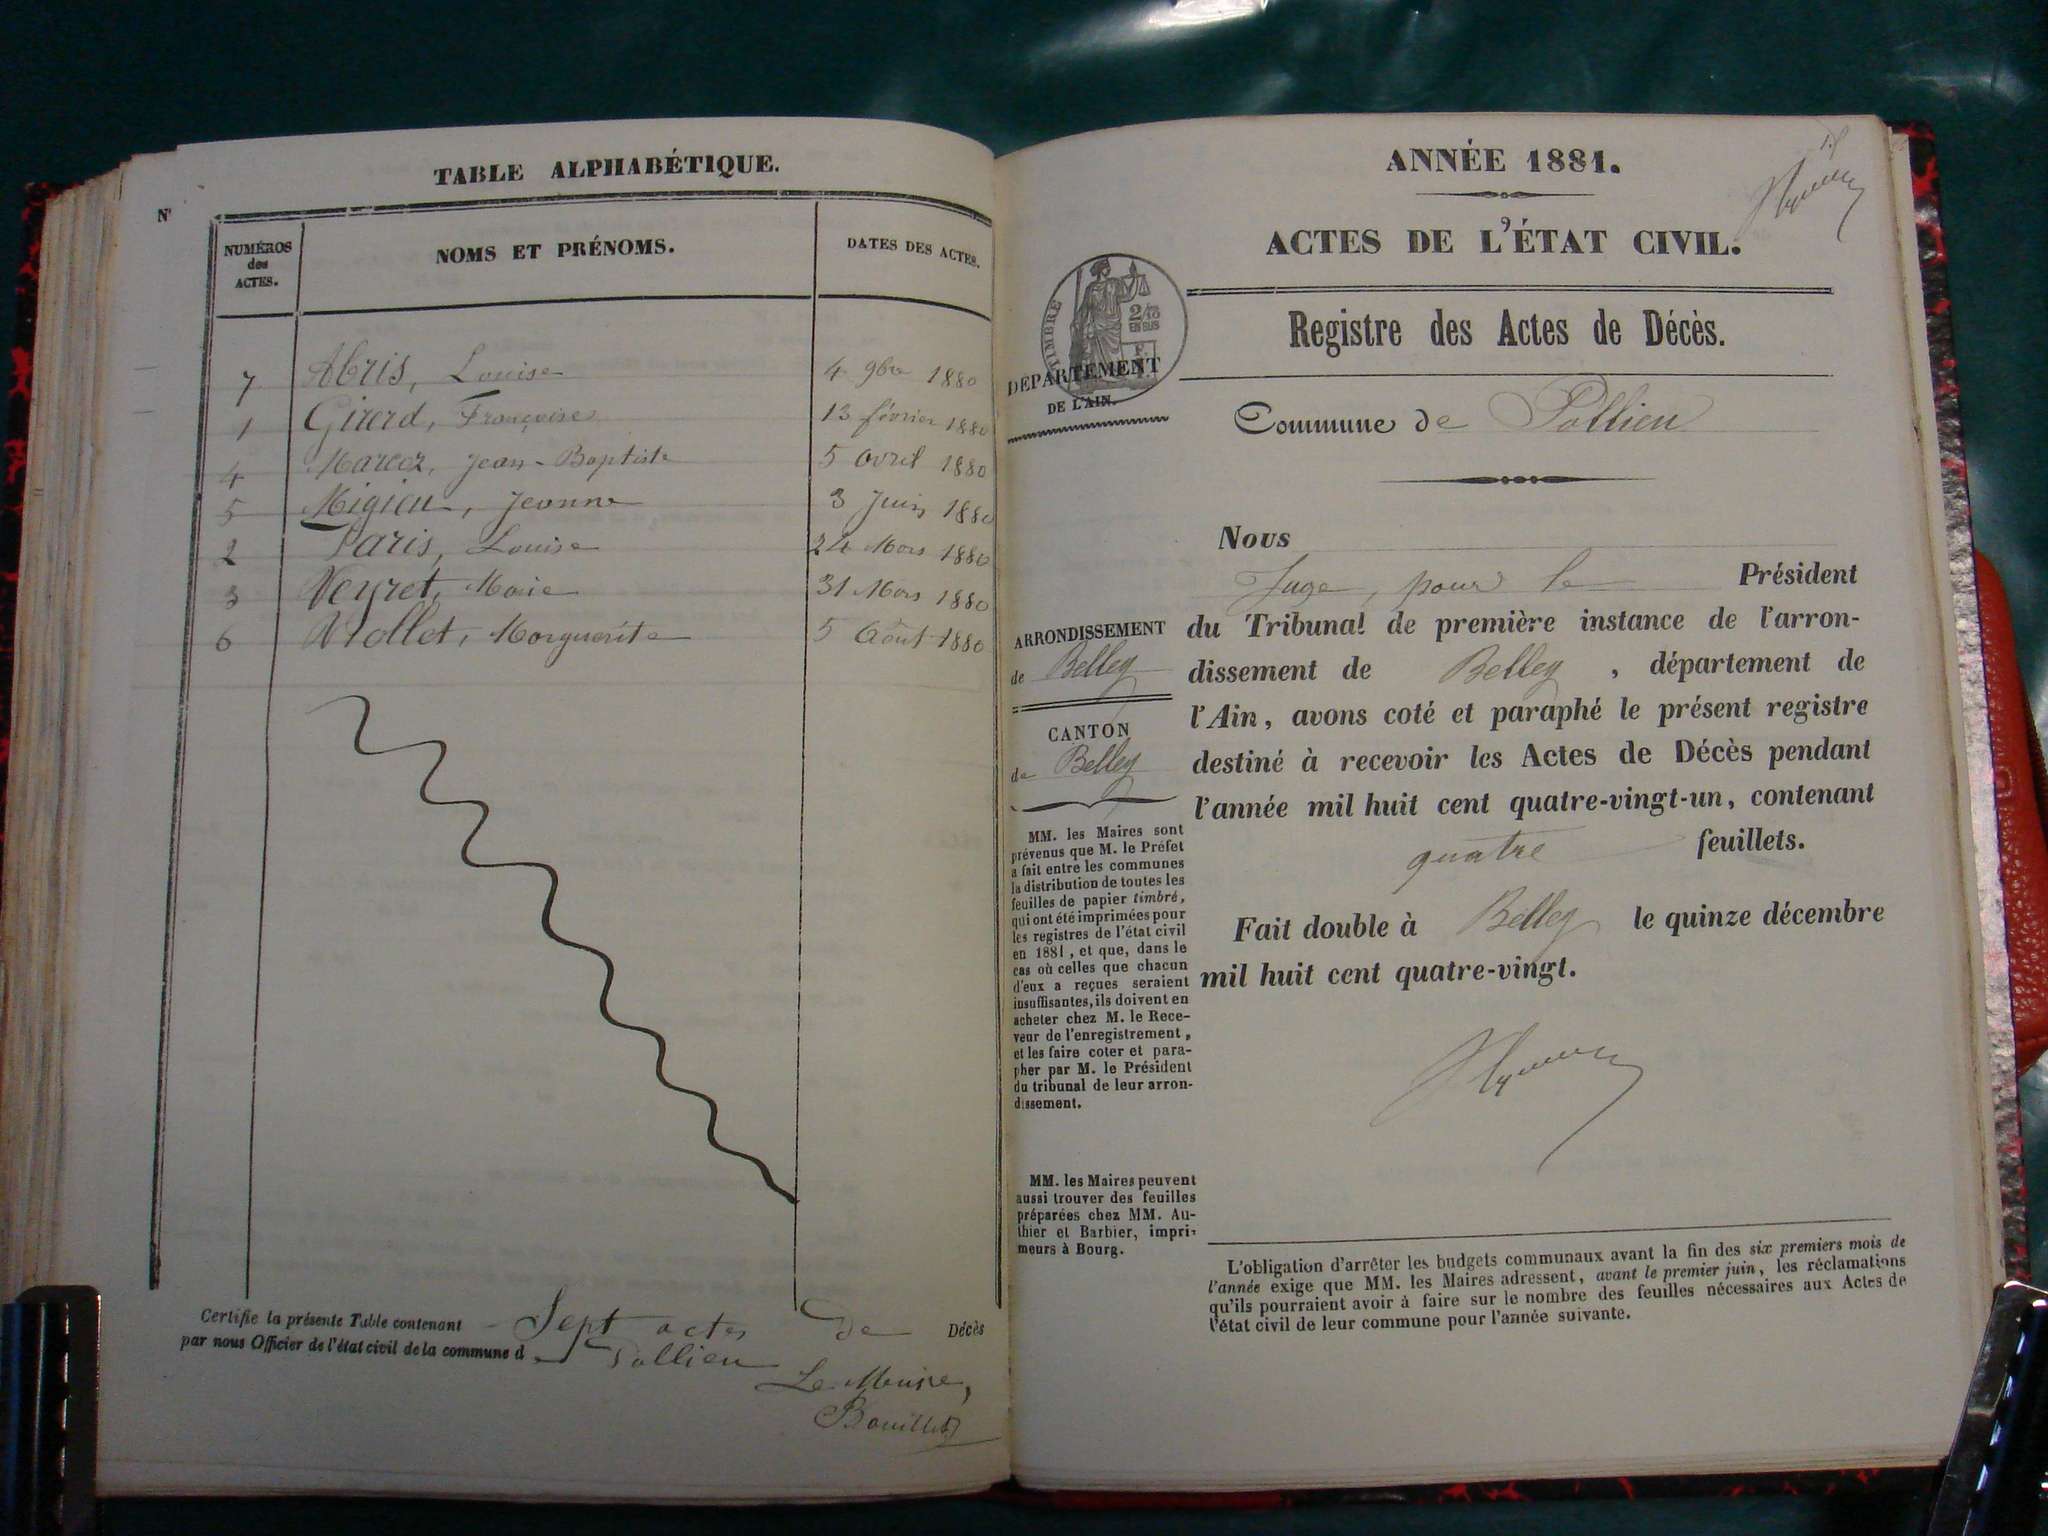 TABLE ALPHABÉTIQUE.
N°
NUMÉROS
des
ACTES.
NOMS ET PRÉNOMS.
DATES DES ACTES.
7 Abris, Louise 4 9bre 1880
1 Girerd, Françoise 13 février 1880
4 Marcoz, Jean-Baptiste 5 Avril 1880
5 Migieu, Jeanne 3 Juin 1880
2 Paris, Louise 24 Mars 1880
3 Veyret, Marie 31 Mars 1880
6 Viollet, Marguerite 5 Août 1880
Certifie la présente Table contenant Sept actes de Décès
par nous Officier de l'état civil de la commune de Pollieu
Le Maire,
Bouillet
ANNÉE 1881.
ACTES DE L'ÉTAT CIVIL.
TIMBRE
2/10
EN SUS
DÉPARTEMENT
DE L'AIN.
Registre des Actes de Décès.
Commune de Pollieu
ARRONDISSEMENT
de Belley
CANTON
de Belley
MM. les Maires sont
prévenus que M. le Préfet
a fait entre les communes
la distribution de toutes les
feuilles de papier timbré,
qui ont été imprimées pour
les registres de l'état civil
en 1881, et que, dans le
cas où celles que chacun
d'eux a reçues seraient
insuffisantes, ils doivent en
acheter chez M. le Rece-
veur de l'enregistrement,
et les faire coter et para-
pher par M. le Président
du tribunal de leur arron-
dissement.
MM. les Maires peuvent
aussi trouver des feuilles
préparées chez MM. Au-
thier et Barbier, impri-
meurs à Bourg.
Nous
Juge, pour le Président
du Tribunal de première instance de l'arron-
dissement de Belley, département de
l'Ain, avons coté et paraphé le présent registre
destiné à recevoir les Actes de Décès pendant
l'année mil huit cent quatre-vingt-un, contenant
quatre feuillets.
Fait double à Belley le quinze décembre
mil huit cent quatre-vingt.
L'obligation d'arrêter les budgets communaux avant la fin des six premiers mois de
l'année exige que MM. les Maires adressent, avant le premier juin, les réclamations
qu'ils pourraient avoir à faire sur le nombre des feuilles nécessaires aux Actes de
l'état civil de leur commune pour l'année suivante.